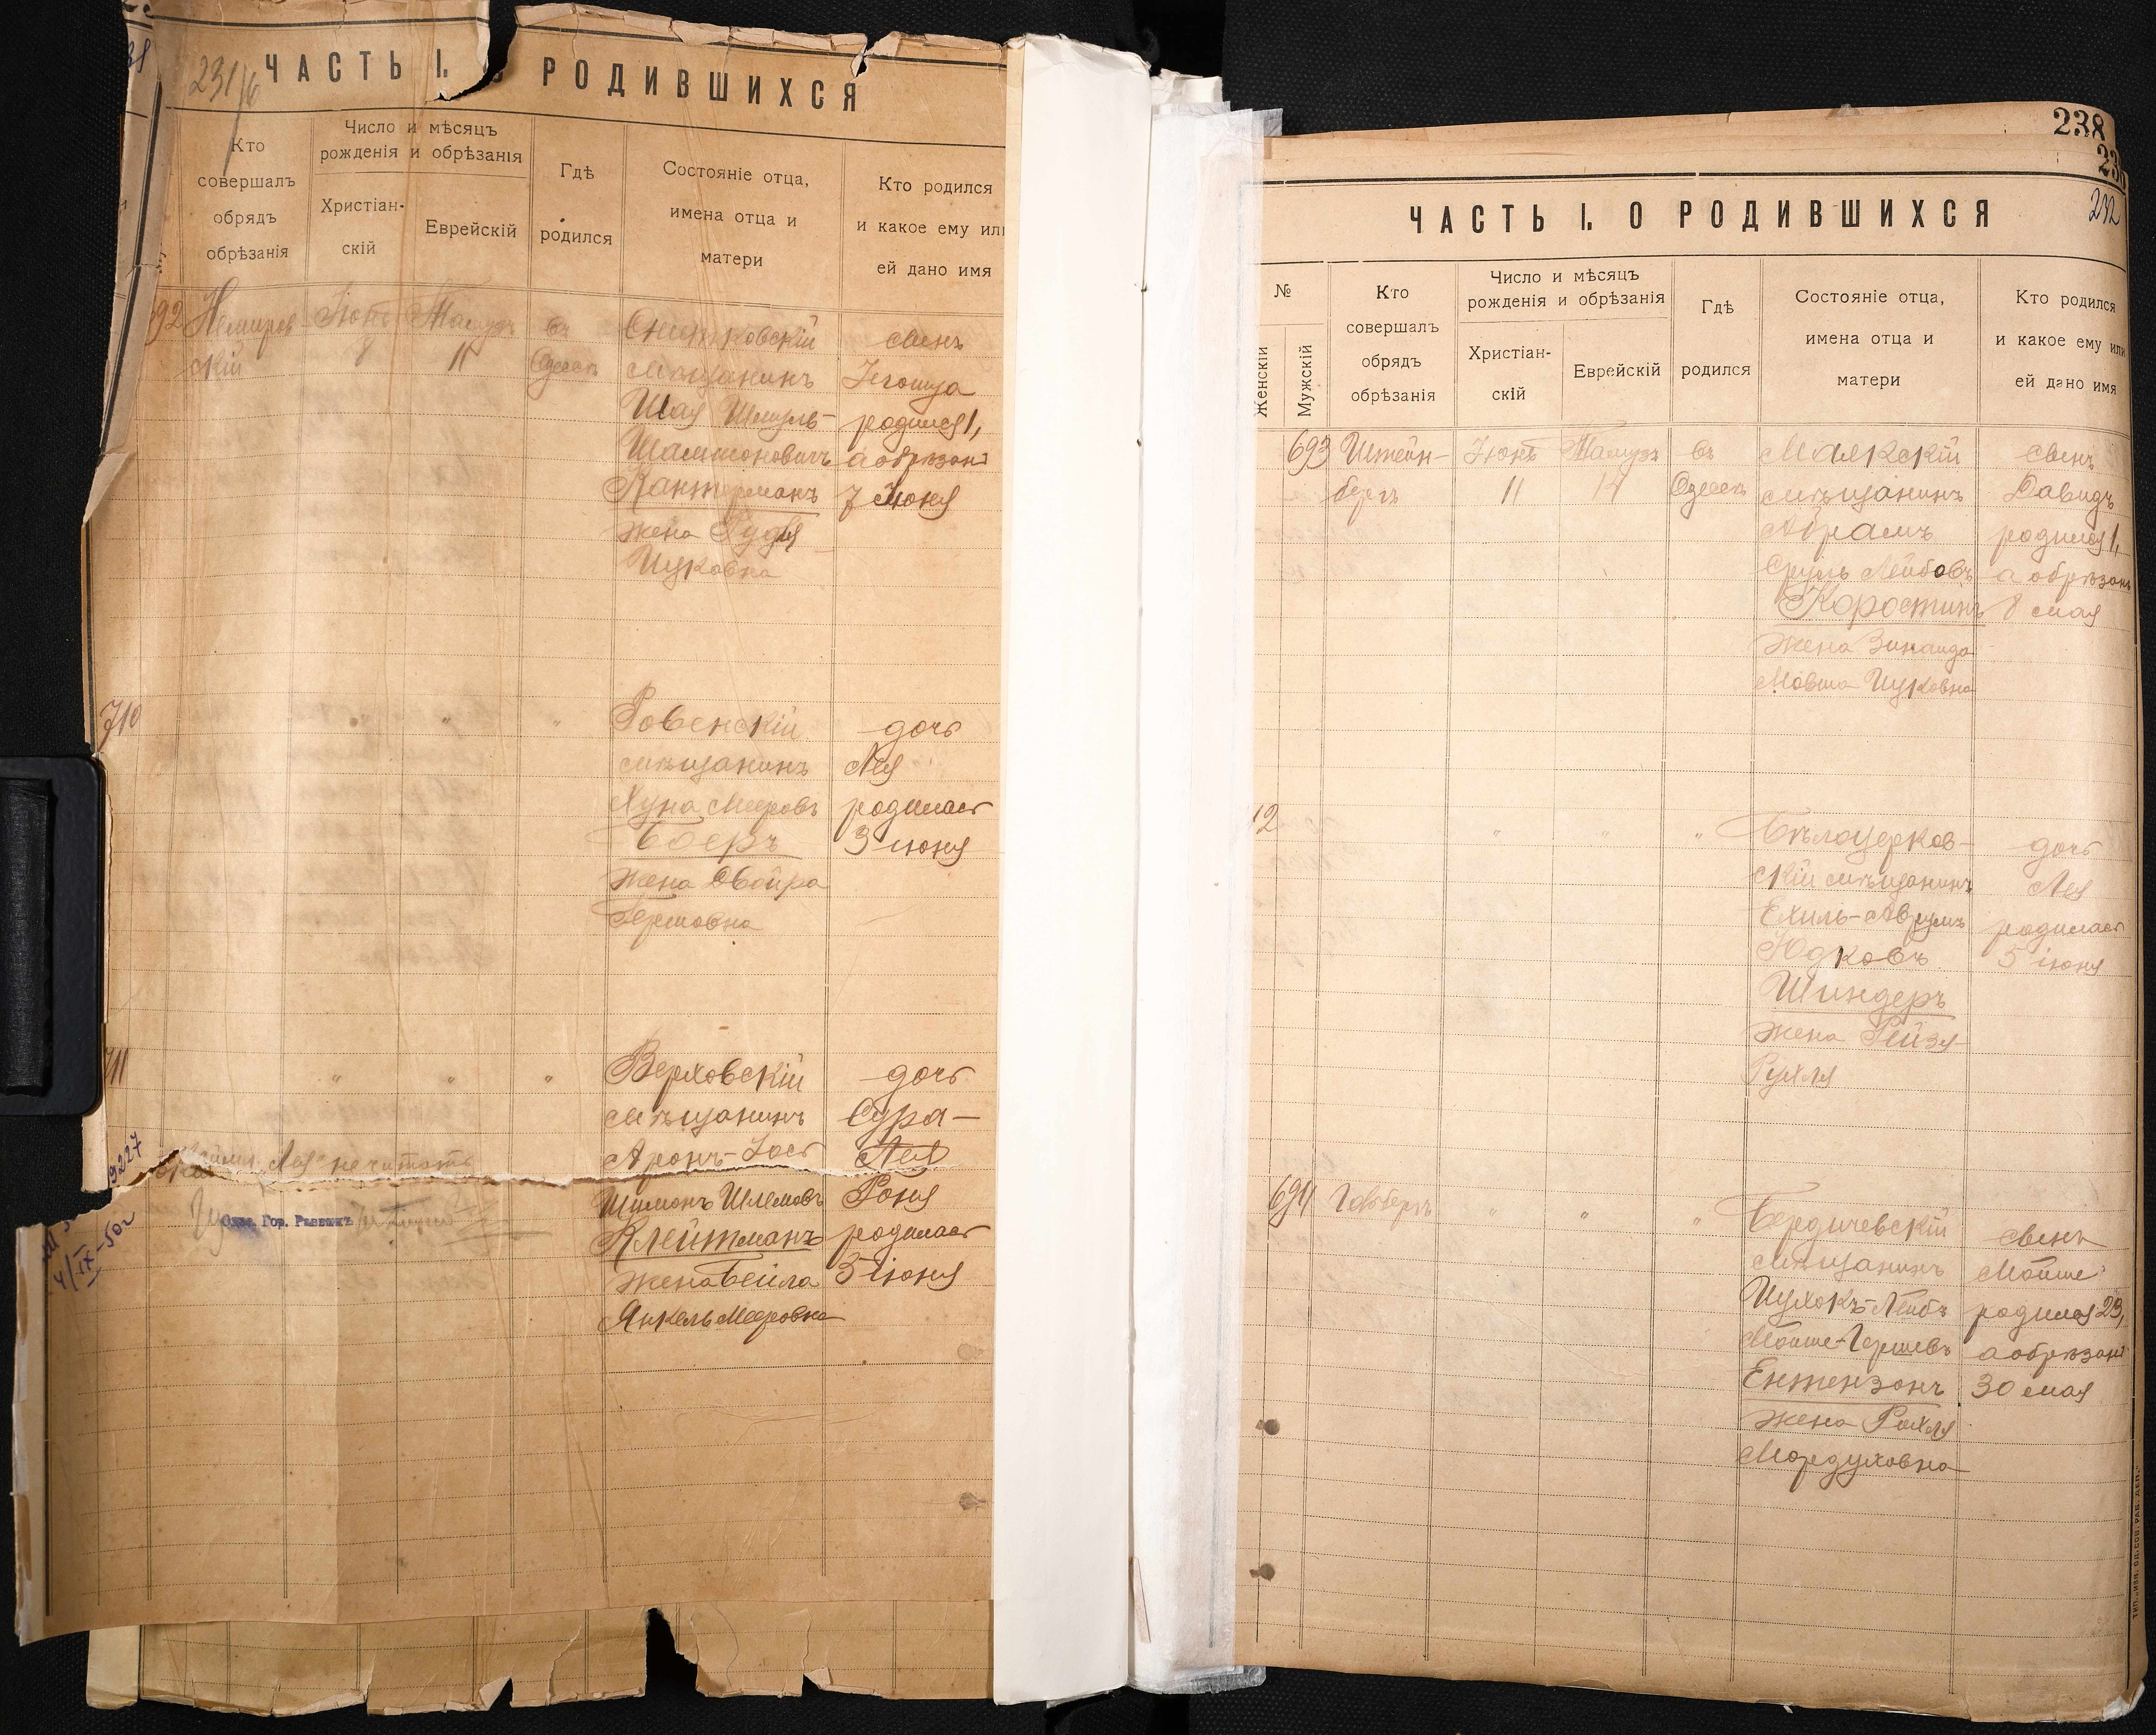 231/6
ЧАСТЬ I. О РОДИВШИХСЯ
Кто
совершалъ
обрядъ
обрѣзанія
Число и мѣсяцъ
рожденія и обрѣзанія
Христіан-
скій
Еврейскій
Гдѣ
родился
Состояніе отца,
имена отца и
матери
Кто родился
и какое ему или
ей дано имя
92
Немиров
скій
Іюнь
8
Тамузъ
въ
Одессѣ
мѣщанинъ
Шая Шмуль-
Шамшоновичъ
Кантерманъ
жена
Ицковна
сынъ
Іегошуа
родился 1,
а обрѣзанъ
7 Июня
710
" " "
Ровенскій
мѣщанинъ
Хуна Мееровъ
Боеръ
жена Двойра
Гершовна
дочь
Лея
родилась
3 іюня
711
" " "
Верховскій
мѣщанинъ
Аронъ-Іось
Шимонъ Шлемовъ
Клейтманъ
жена Бейла
Янкель Мееровна
дочь
Сура-
Лея
Роня
родилась
3 іюня
9227
Лея не читать
Одес. Гор. Раввинъ
4/IX-50г
238
232
ЧАСТЬ I. О РОДИВШИХСЯ
№
Женскій
Мужскій
Кто
совершалъ
обрядъ
обрѣзанія
Число и мѣсяцъ
рожденія и обрѣзанія
Христіан-
скій
Еврейскій
Гдѣ
родился
Состояніе отца,
имена отца и
матери
Кто родился
и какое ему или
ей дано имя
693
Штейн-
бергъ
Іюнь
11
Тамузъ
14
въ
Одессѣ
Маякскій
мѣщанинъ
Абрамъ
Сруль Лейбовъ
Коростинъ
жена Зинаида
Мовша Ицковна
сынъ
Давидъ
родился 1,
а обрѣзанъ
8 мая
12
" " "
Бѣлоцерков-
скій мѣщанинъ
Ехиль-Аврумъ
Юдковъ
Шиндеръ
жена Рейзя
Рухля
дочь
Лея
родилась
5 іюня
694
" " "
Бердичевскій
мѣщанинъ
Ицхокъ-Лейбъ
Мойше-Гершевъ
Ентензонъ
жена Рахля
Мордуховна
сынъ
Мойше
родился 23,
а обрѣзанъ
30 мая